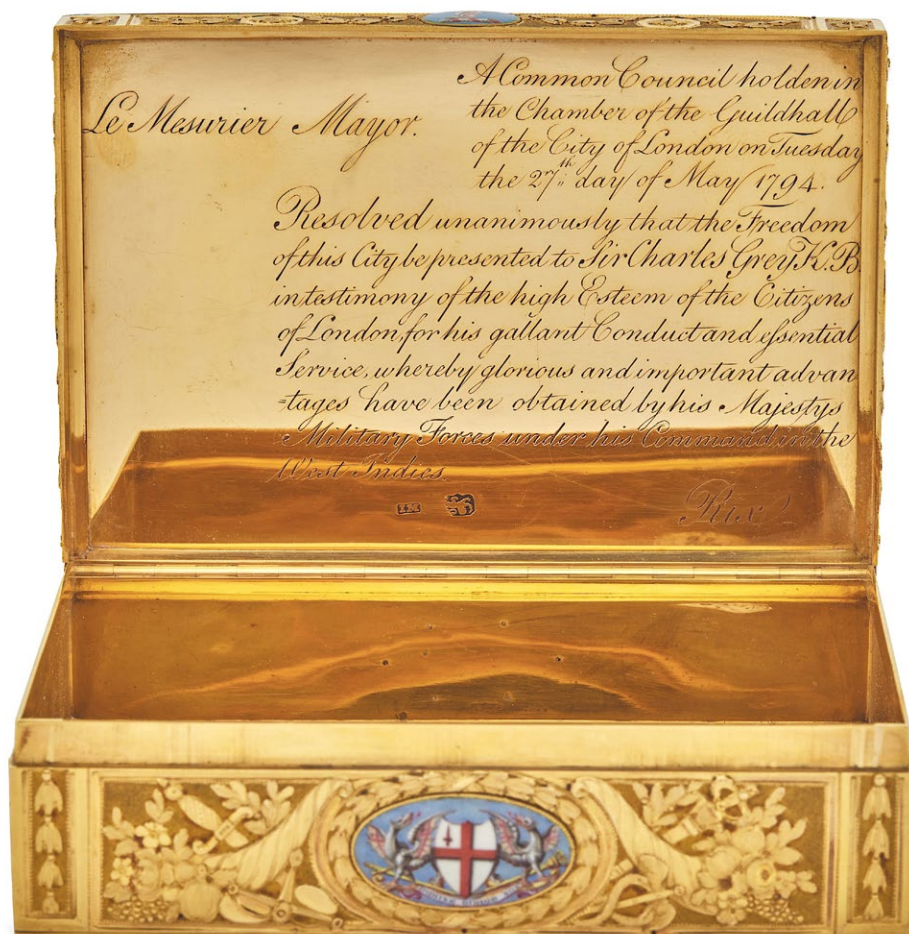 A Common Council holden in
Le Mesurier Mayor.
the Chamber of the Guildhall
of the City of London on Tuesday
the 27th day of May 1794.
Resolved unanimously that the Freedom
of this City be presented to Sir Charles Grey K.B.
in testimony of the high Esteem of the Citizens
of London, for his gallant Conduct and eſsential
Service, whereby glorious and important advan
=tages have been obtained by his Majestys
Military Forces under his Command in the
West Indies.
IM
Rix